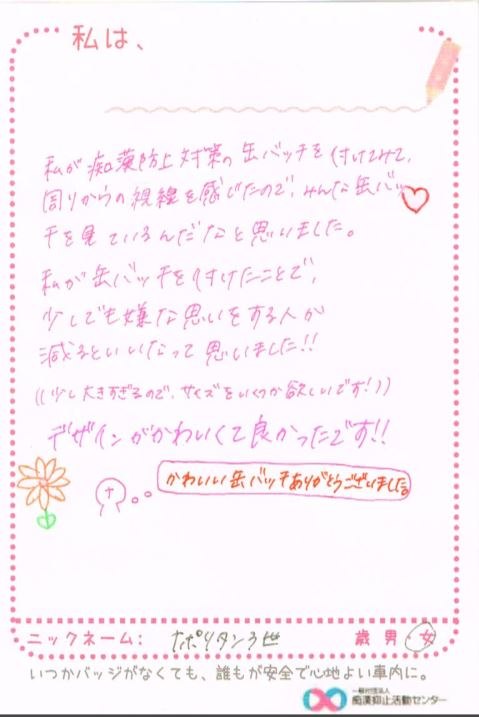 私は、
私が痴漢防止対策の缶バッチを付けてみて、
周りからの視線を感じたので、みんな缶バッ
チを見ているんだなと思いました。
私が缶バッチを付けたことで、
少しでも嫌な思いをする人が
減るといいなって思いました!!
((少し大きすぎるので、サイズをいくつか欲しいです!))
デザインがかわいくて良かったです!!
かわいい缶バッチありがとうございました。
ニックネーム: ナポリタン3世 歳 男・女
いつかバッジがなくても、誰もが安全で心地よい車内に。
一般社団法人
痴漢抑止活動センター